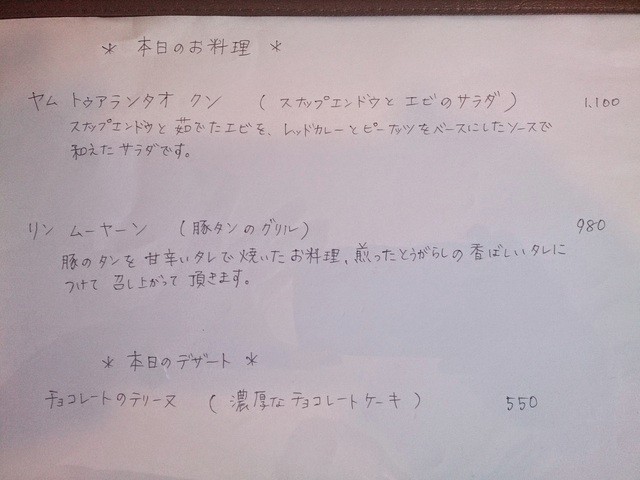 * 本日のお料理 *
ヤム トゥアランタオ クン (スナップエンドウと エビのサラダ) 1,100
スナップエンドウと 茹でたエビを、レッドカレーとピーナッツをベースにしたソースで
和えたサラダです。
リン ムーヤーン (豚タンのグリル) 980
豚のタンを 甘辛いタレで 焼いたお料理、煎ったとうがらしの 香ばしいタレに
つけて 召し上がって 頂きます。
* 本日のデザート *
チョコレートのテリーヌ (濃厚なチョコレートケーキ) 550